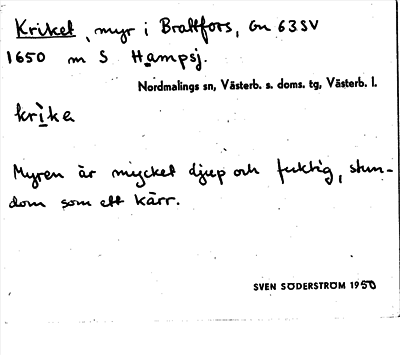 Kriket, myr i Brattfors, Gn 63SV
1650 m S Hampsj.
Nordmalings sn, Västerb. s. doms. tg, Västerb. l.
krika
Myren är mycket djup och fuktig, stun-
dom som ett kärr.
SVEN SÖDERSTRÖM 1950